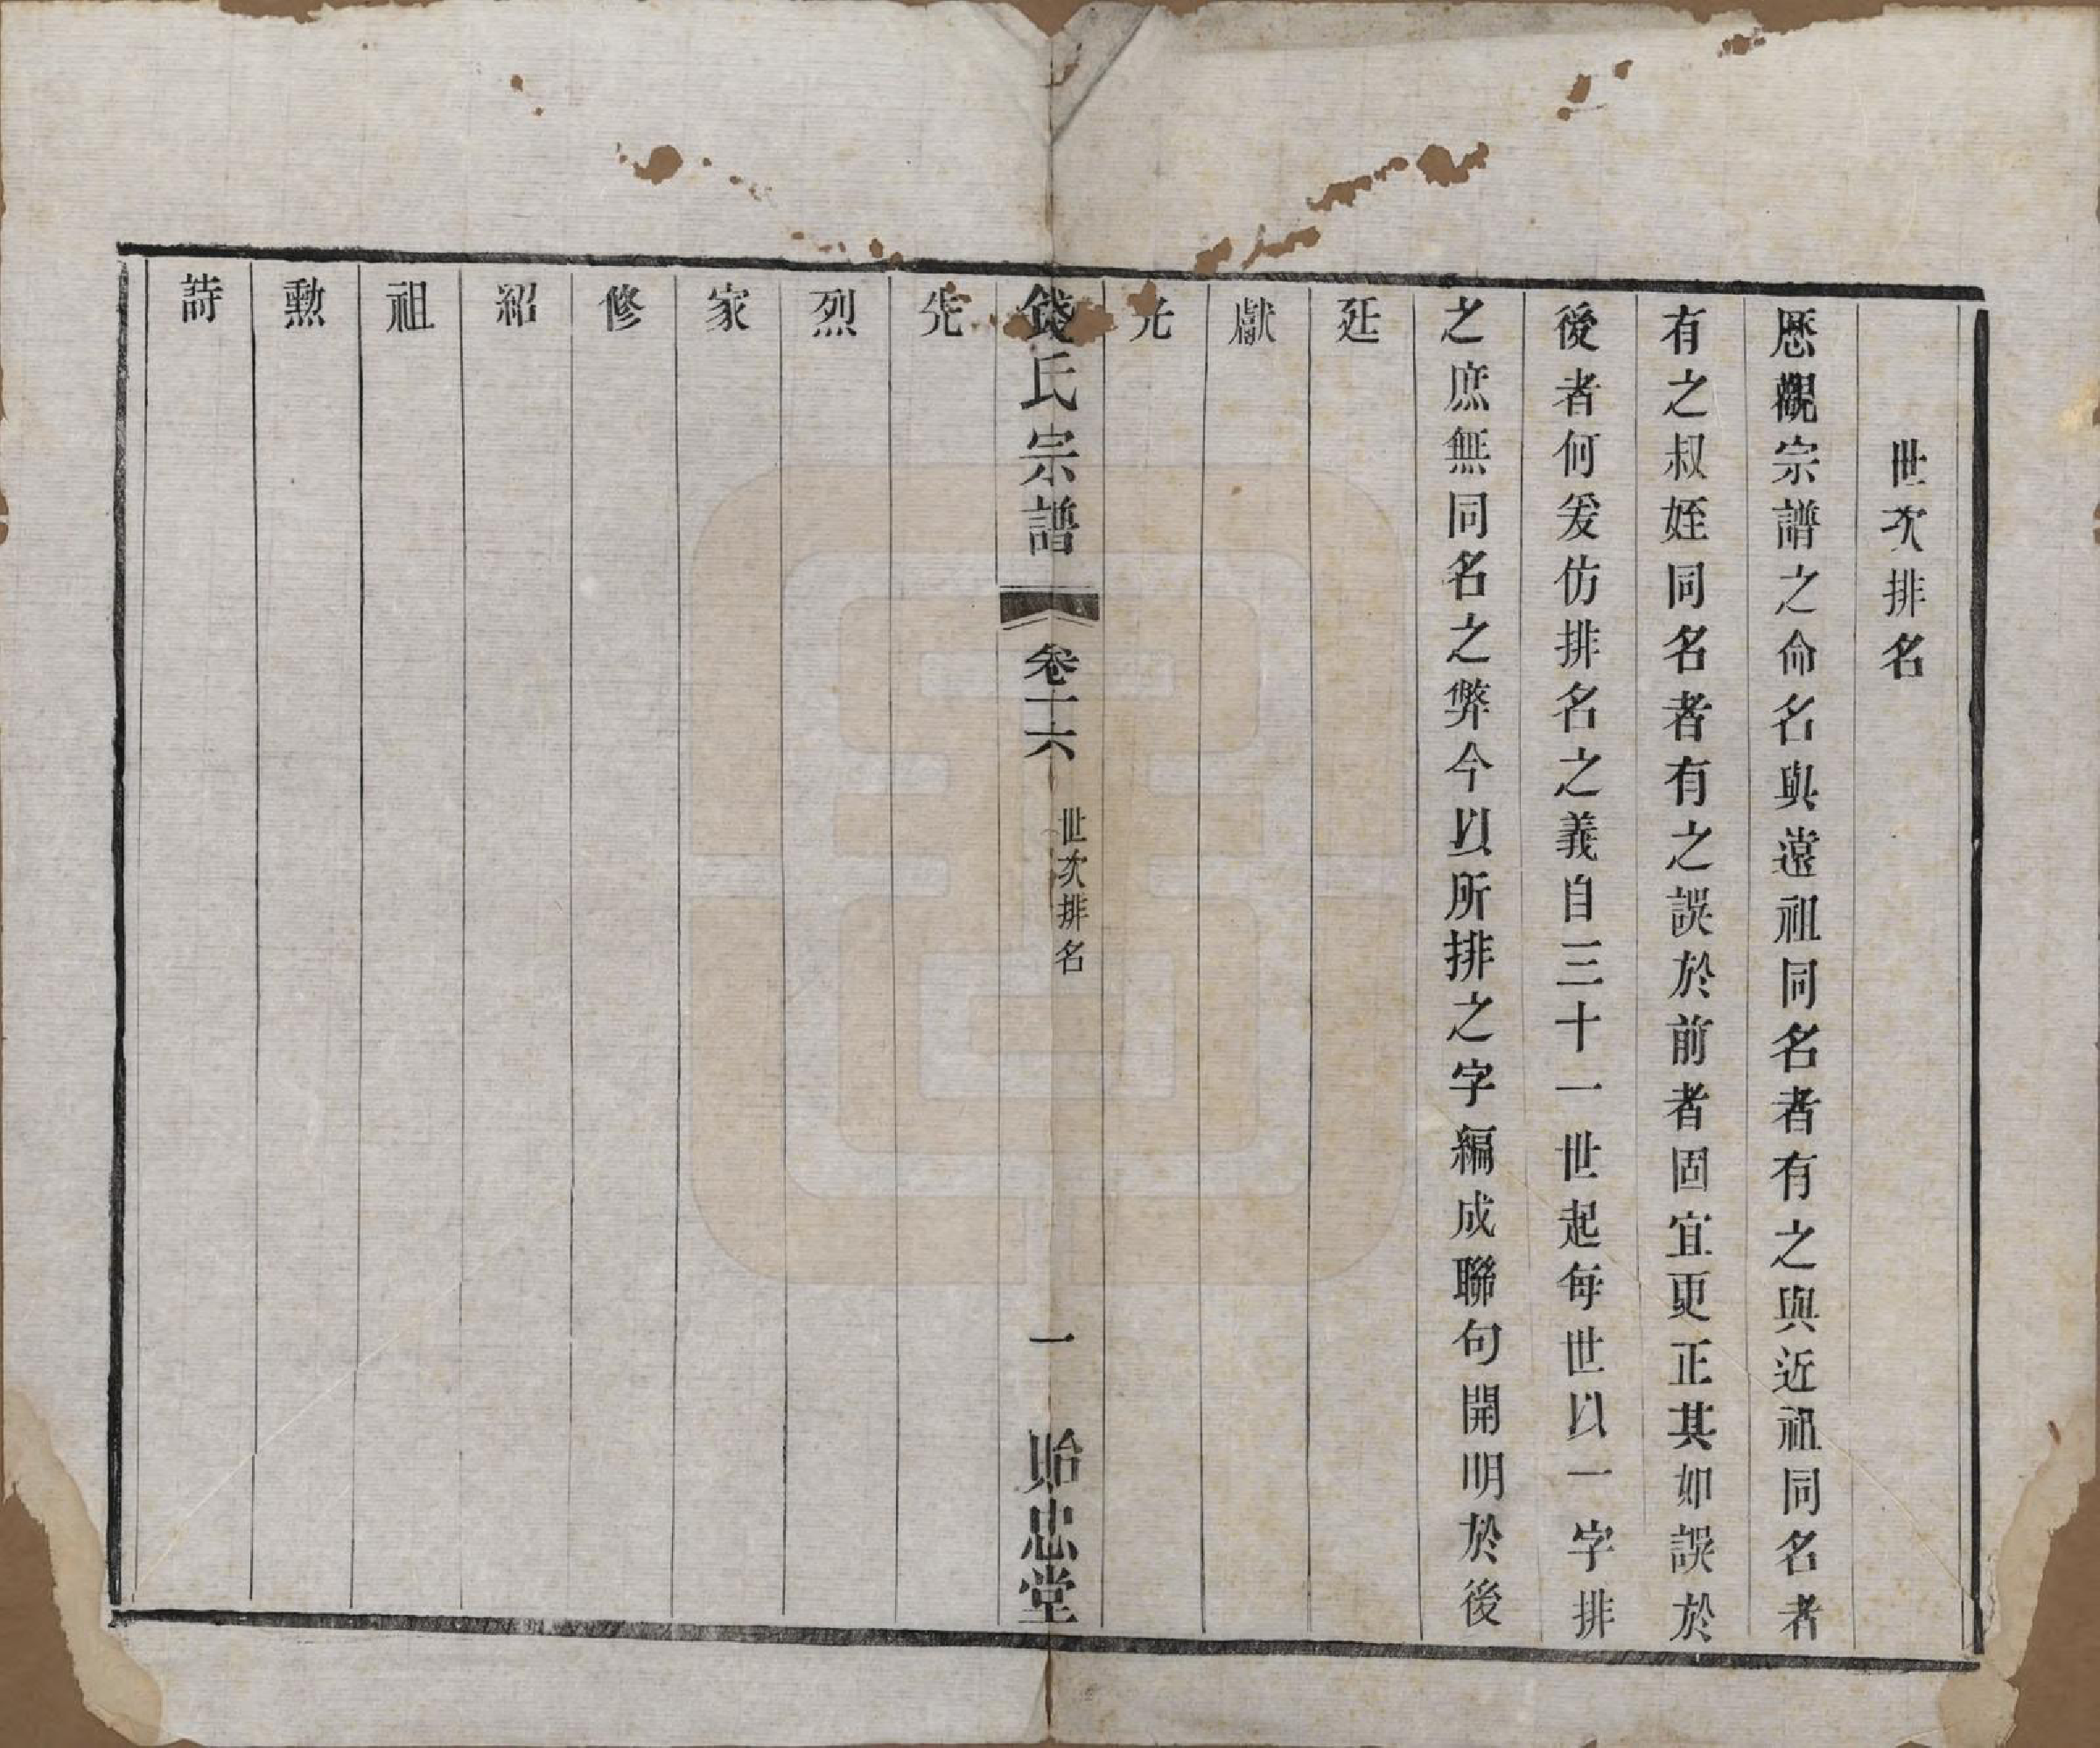 世次排名
歷觀宗譜之命名與遠祖同名者有之與近祖同名者
有之叔姪同名者有之誤於前者固宜更正其如誤於
後者何爰仿排名之義自三十一世起每世以一字排
之庶無同名之弊今以所排之字編成聯句開明於後
延
獻
光
錢氏宗譜 卷十六 世次排名 一 貽忠堂
先
烈
家
修
紹
祖
勲
詩